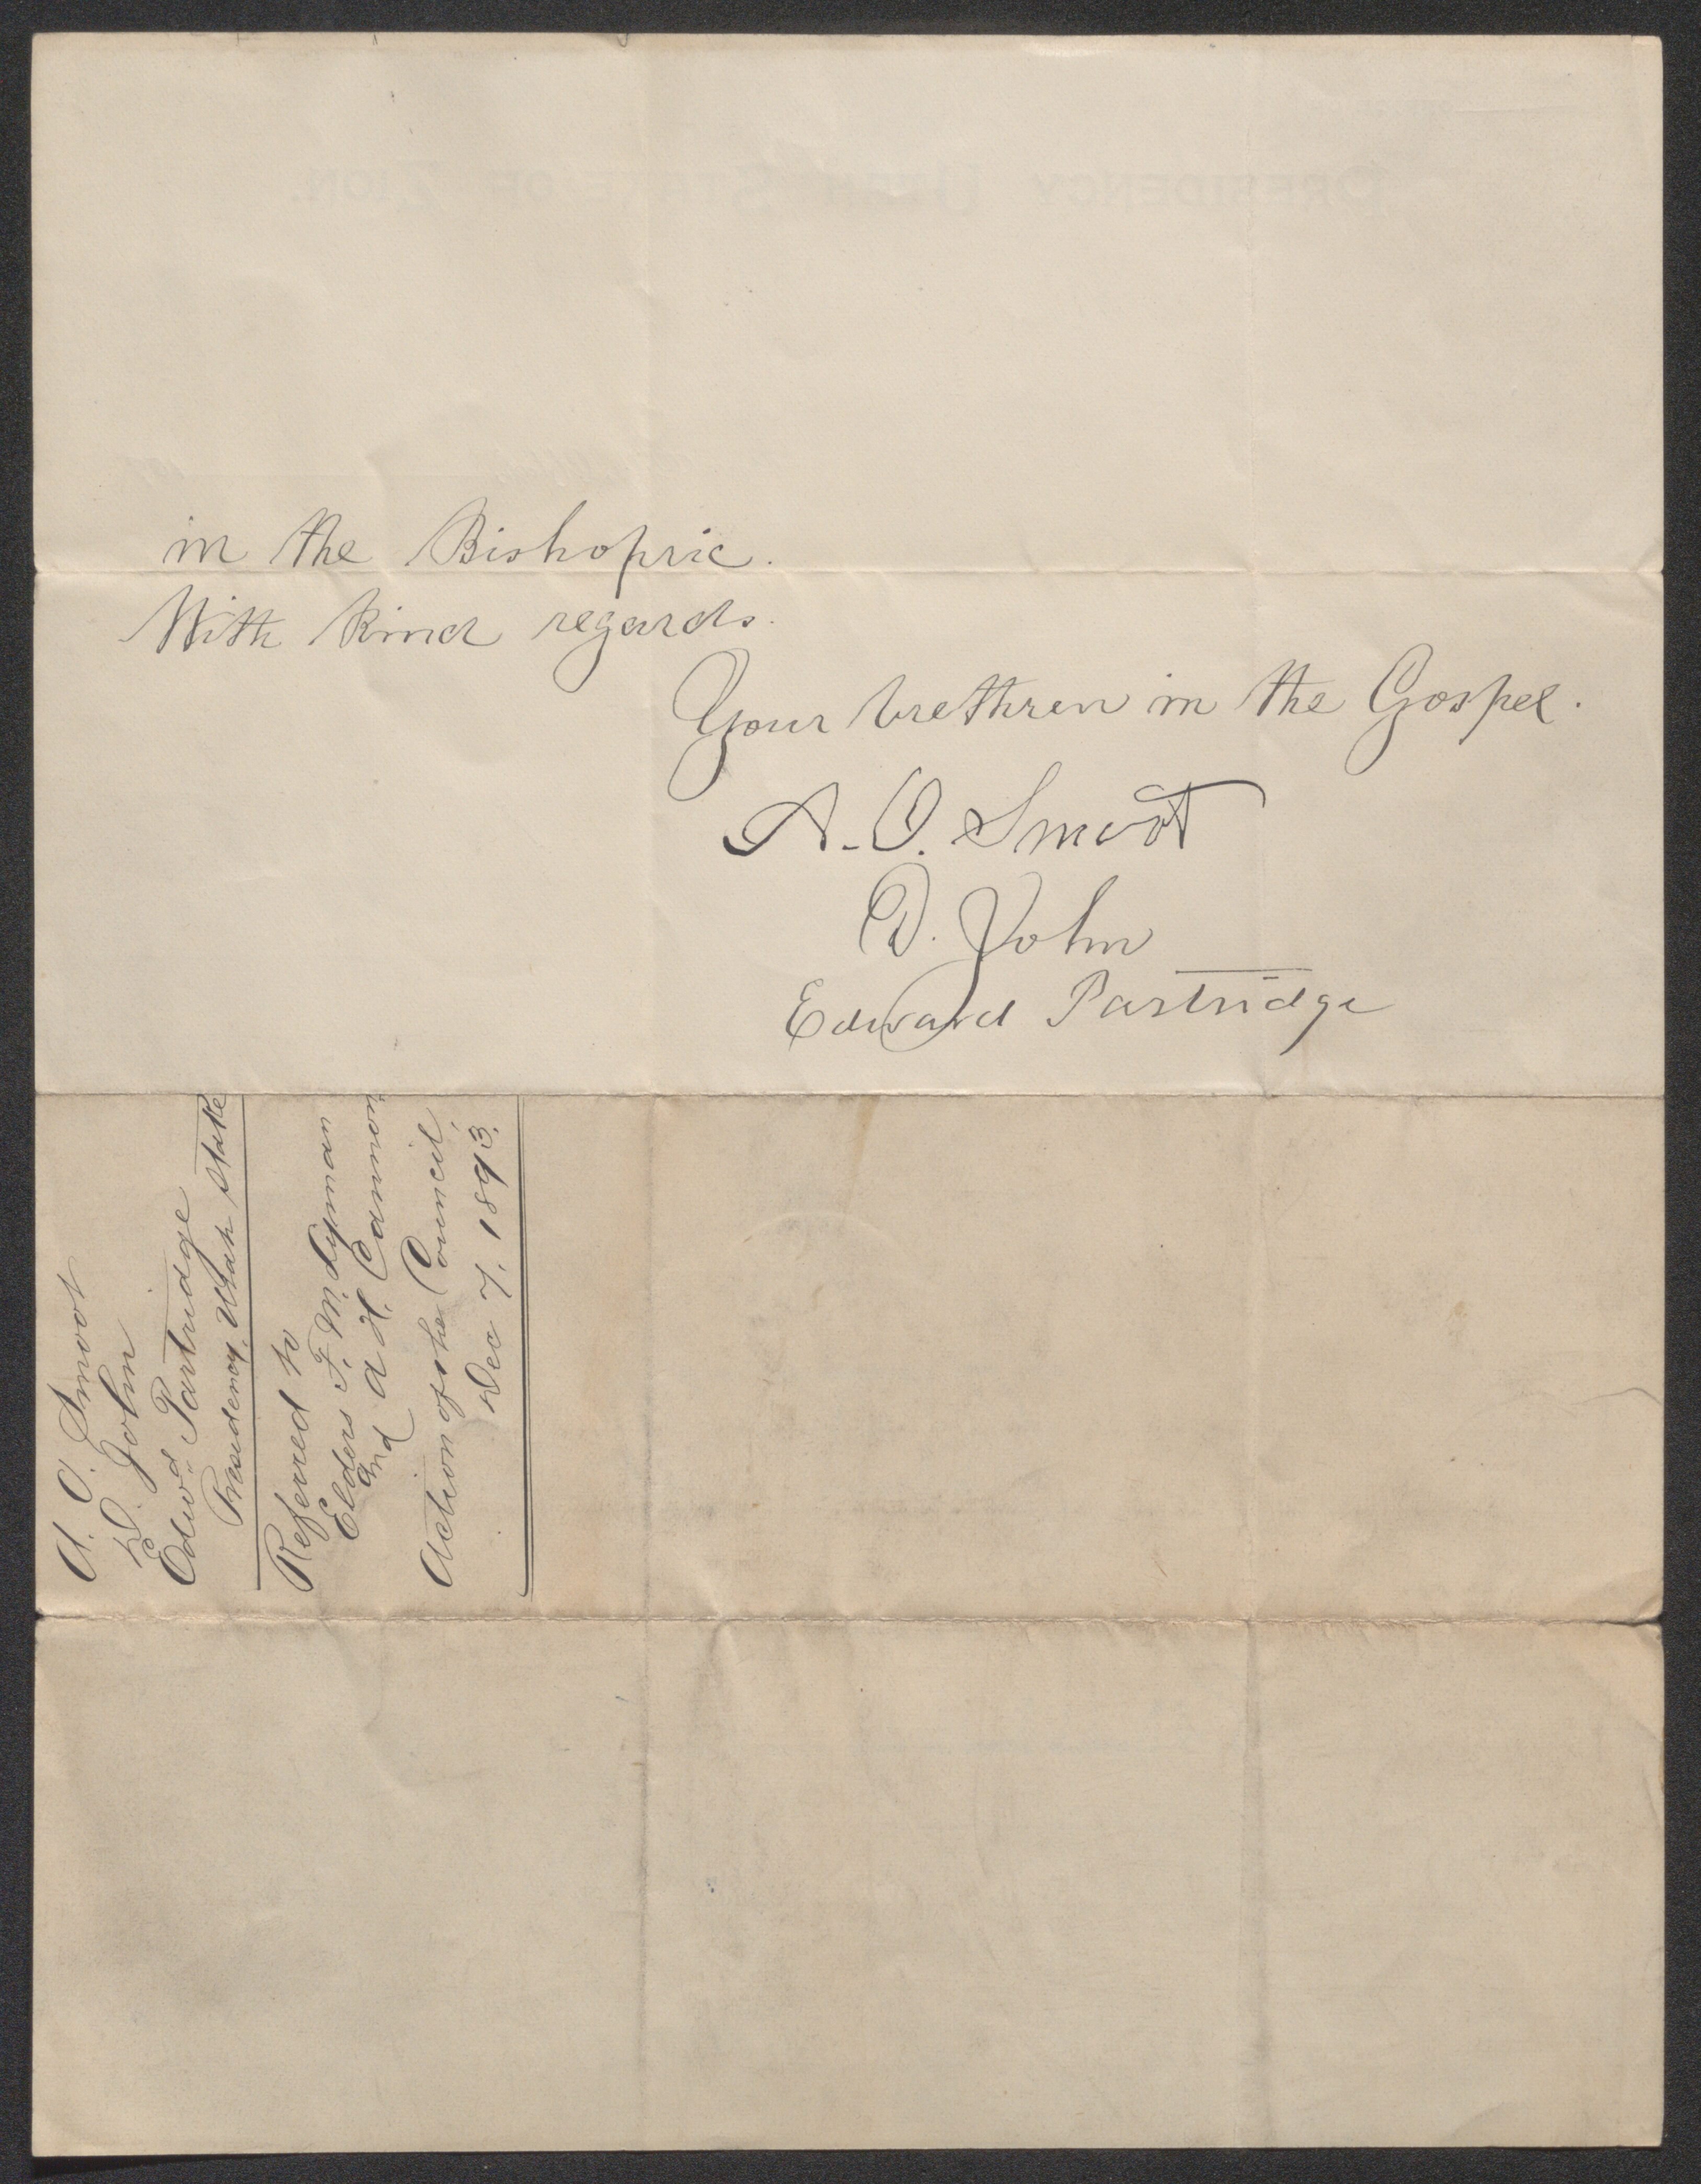 in the Bishopric.
With kind regards.
Your brethren in the Gospel.
A. O. Smoot
D. John
Edward Partridge
A. O. Smoot
D. John
Edwd Partridge
Presidency, Utah Stake
Referred to
Elders F. M. Lyman
and A H. Cannon
Action of the Council,
Dec 7. 1893.